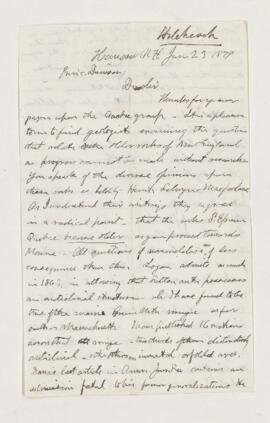 Hitchcock
Hanover N.H. Jun 23 1879
Princ. Dawson,
Dr Sir
Thanks for your
paper upon the Quebec group. It is a pleasure
to me to find geologists examining the question
that relates to the older rocks of New England
as progress cannot be made without
You speak of the diverse opinions upon
these rocks as held by Hunt, Selwyn & Macfarlane
As I understand their writings they agreed
in a radical point. that the
Quebec become older as you proceed towards
Maine - All questions of nomenclature of less
consequence than this. Logan admits as much
in 1863, in allowing that Sutton mts possesses
an anticlinal structure. I have found to be
true of the Green Mts range as far
south as Massachusetts. I have published 16 sections
across that range
anticlinal - the others inverted or folded over.
Dana's last article in Amer. Journ. Sci contains an
admission fatal to his former generalizations the